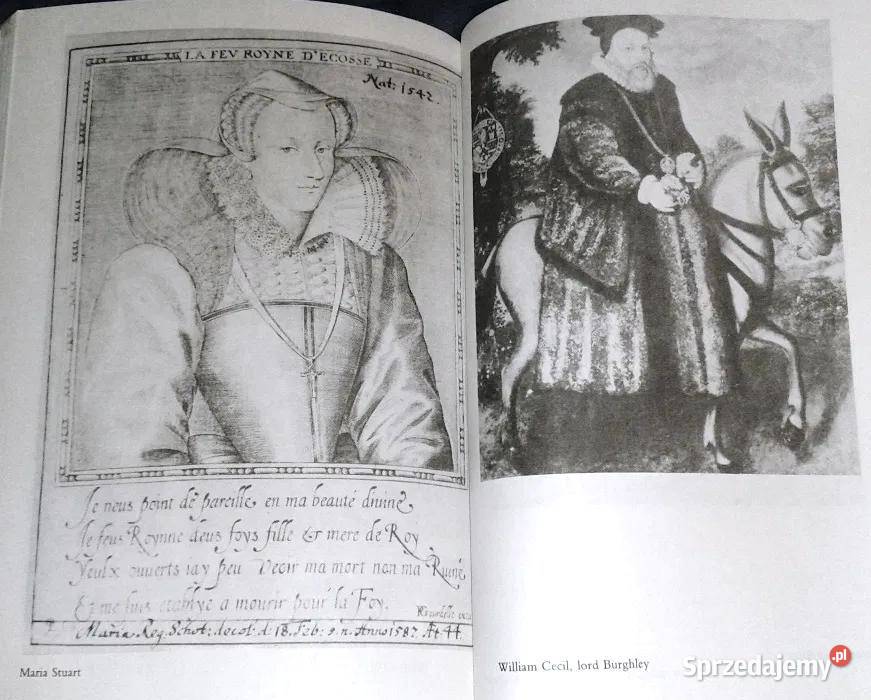 LA FEV ROYNE D'ECOSSE
Nat: 1542.
Je neus point de pareille en ma beauté divine
Je feus Roynne deus foys fille & mere de Roy
Yeulx ouverts iay peu Veoir ma mort non ma Ruine
Et me suis a mourir pour la Foy.
Maria Reg. Schot: decol: d: 18 Feb: s. n. Anno 1587. Æt 44.
Maria Stuart
William Cecil, lord Burghley
Sprzedajemy.pl